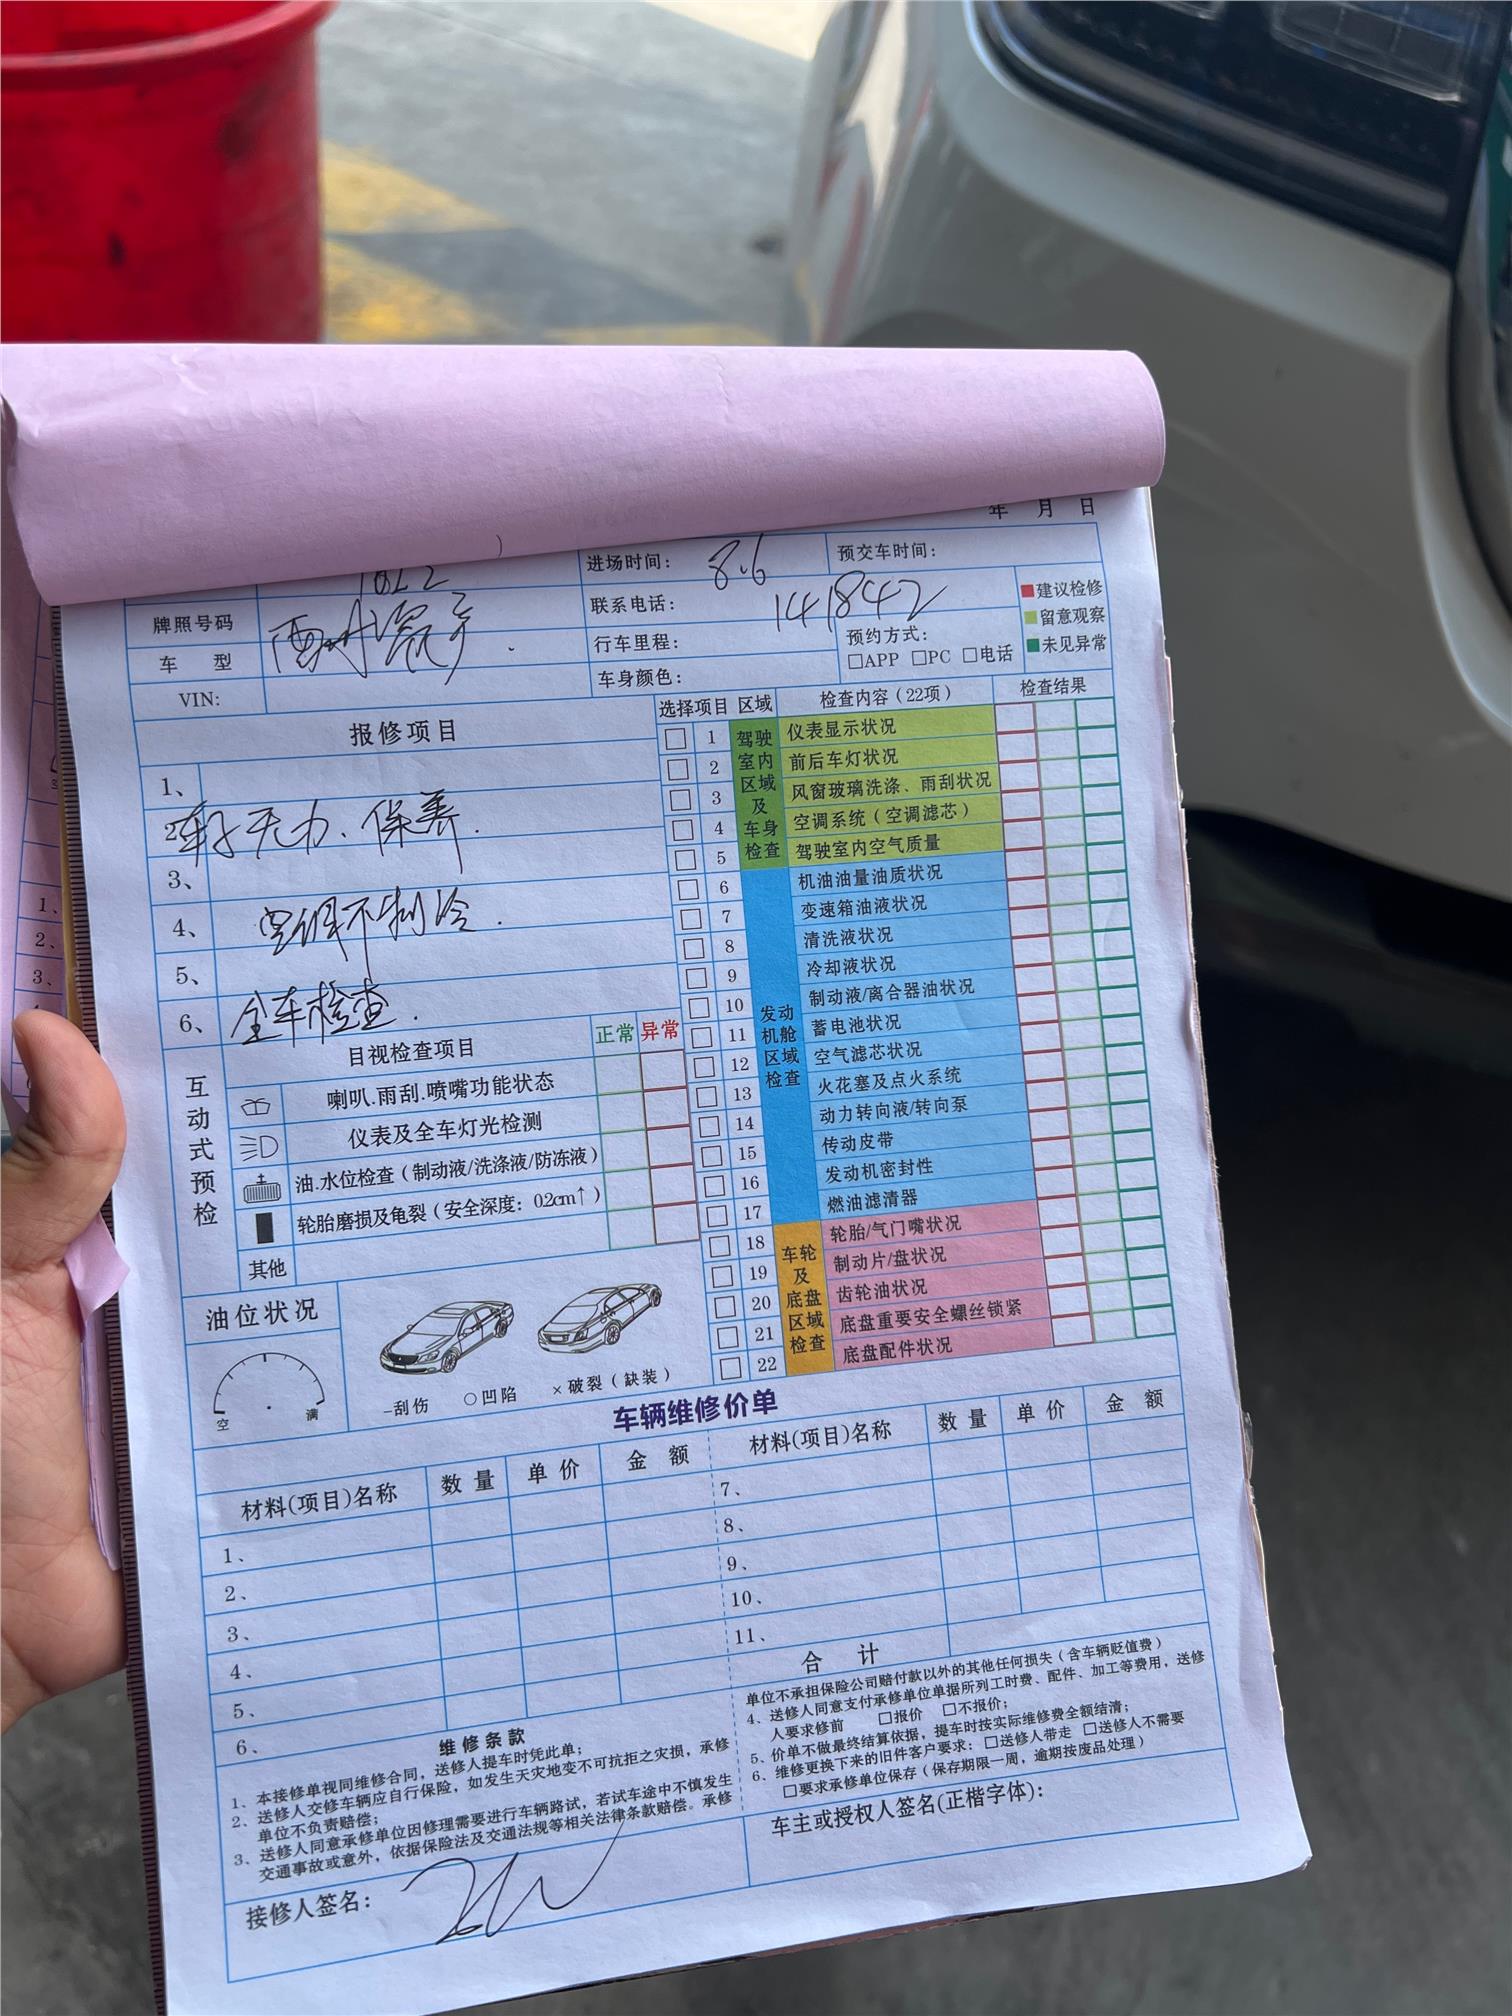 年 月 日
进场时间： 8.6 预交车时间：
牌照号码
联系电话：
141842
车 型
行车里程： 预约方式：
□APP □PC □电话
VIN:
车身颜色：
建议检修
留意观察
未见异常
报修项目
1、
2、
车子无力、保养.
3、
4、
空调不制冷.
5、
6、
全车检查.
选择项目 区域 检查内容（22项） 检查结果
驾驶室内区域及车身检查
1 仪表显示状况
2 前后车灯状况
3 风窗玻璃洗涤、雨刮状况
4 空调系统（空调滤芯）
5 驾驶室内空气质量
发动机舱区域检查
6 机油油量油质状况
7 变速箱油液状况
8 清洗液状况
9 冷却液状况
10 制动液/离合器油状况
11 蓄电池状况
12 空气滤芯状况
13 火花塞及点火系统
14 动力转向液/转向泵
15 传动皮带
16 发动机密封性
17 燃油滤清器
车轮及底盘区域检查
18 轮胎/气门嘴状况
19 制动片/盘状况
20 齿轮油状况
21 底盘重要安全螺丝锁紧
22 底盘配件状况
互动式预检
目视检查项目 正常 异常
喇叭.雨刮.喷嘴功能状态
仪表及全车灯光检测
油.水位检查（制动液/洗涤液/防冻液）
轮胎磨损及龟裂（安全深度：0.2cm↑）
其他
油位状况
空 满
–刮伤 ○凹陷 ×破裂（缺装）
车辆维修价单
材料(项目)名称 数量 单价 金额 材料(项目)名称 数量 单价 金额
1、 7、
2、 8、
3、 9、
4、 10、
5、 11、
6、 合 计
维修条款
1、本接修单视同维修合同，送修人提车时凭此单；
2、送修人交修车辆应自行保险，如发生天灾地变不可抗拒之灾损，承修
单位不负责赔偿；
3、送修人同意承修单位因修理需要进行车辆路试，若试车途中不慎发生
交通事故或意外，依据保险法及交通法规等相关法律条款赔偿。承修
单位不承担保险公司赔付款以外的其他任何损失（含车辆贬值费）
4、送修人同意支付承修单位单据所列工时费、配件、加工等费用，送修
人要求修前 □报价 □不报价；
5、价单不做最终结算依据，提车时按实际维修费全额结清；
6、维修更换下来的旧件客户要求：□送修人带走 □送修人不需要
□要求承修单位保存（保存期限一周，逾期按废品处理）
接修人签名：
车主或授权人签名(正楷字体)：